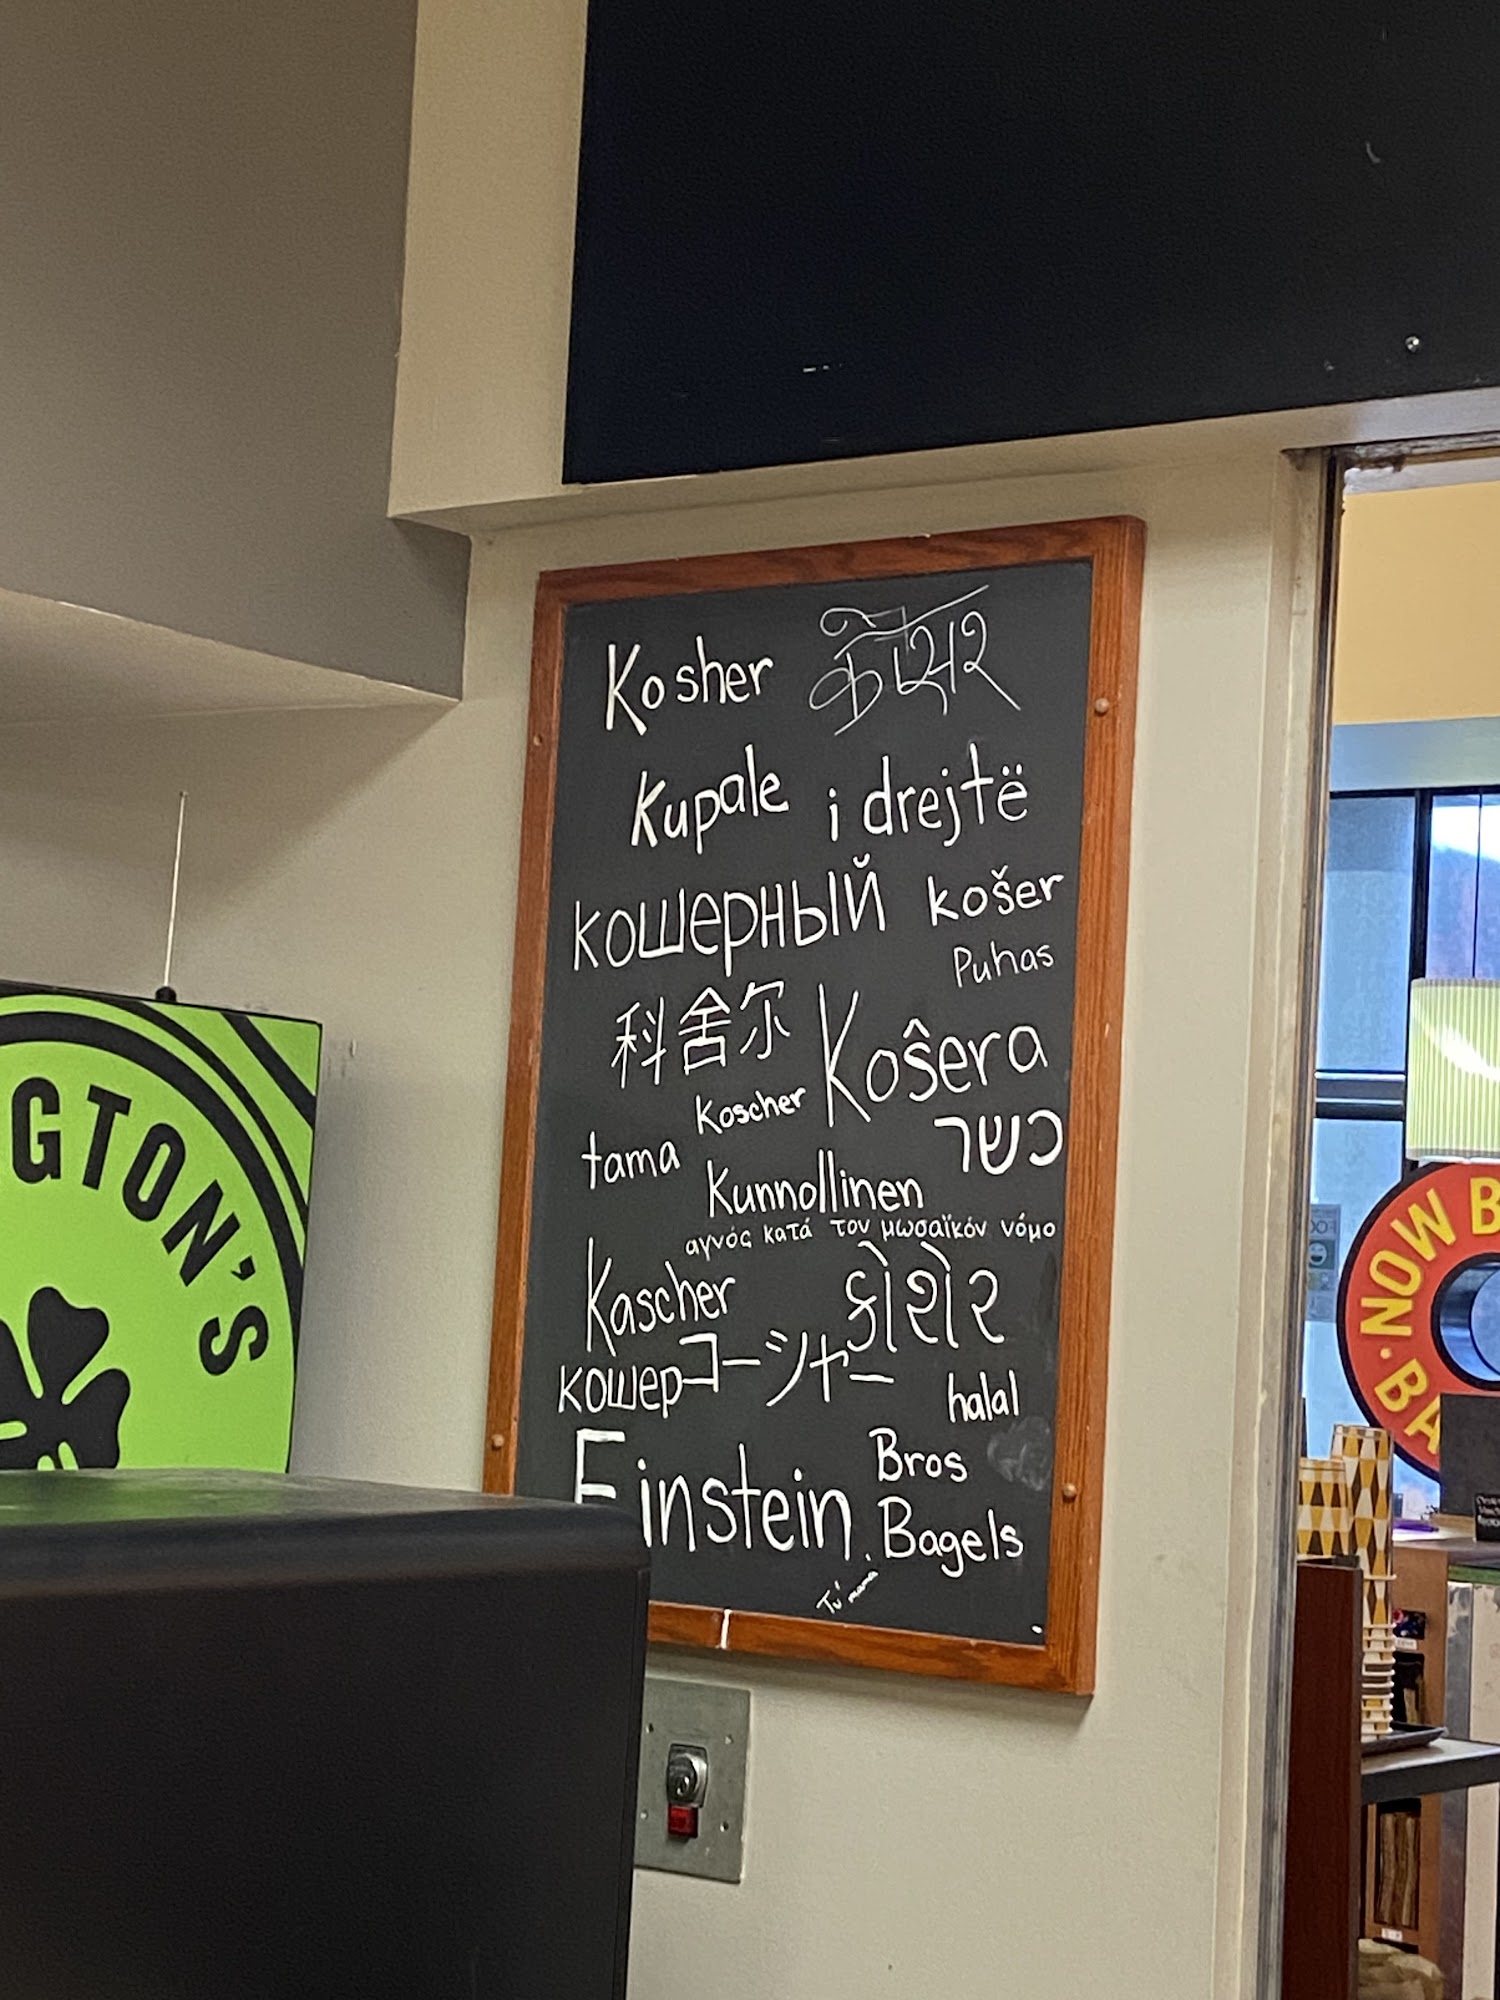 Kosher
Kupale i drejtë
кошерный košer
Puhas
科舍尔 Koŝera
Koscher
tama כשר
Kunnollinen
αγνός κατά τον μωσαϊκόν νόμο
Kascher કોશેર
кошер コーシャー halal
Einstein Bros
Bagels
Tu mama
GTON'S
NOW B
BA